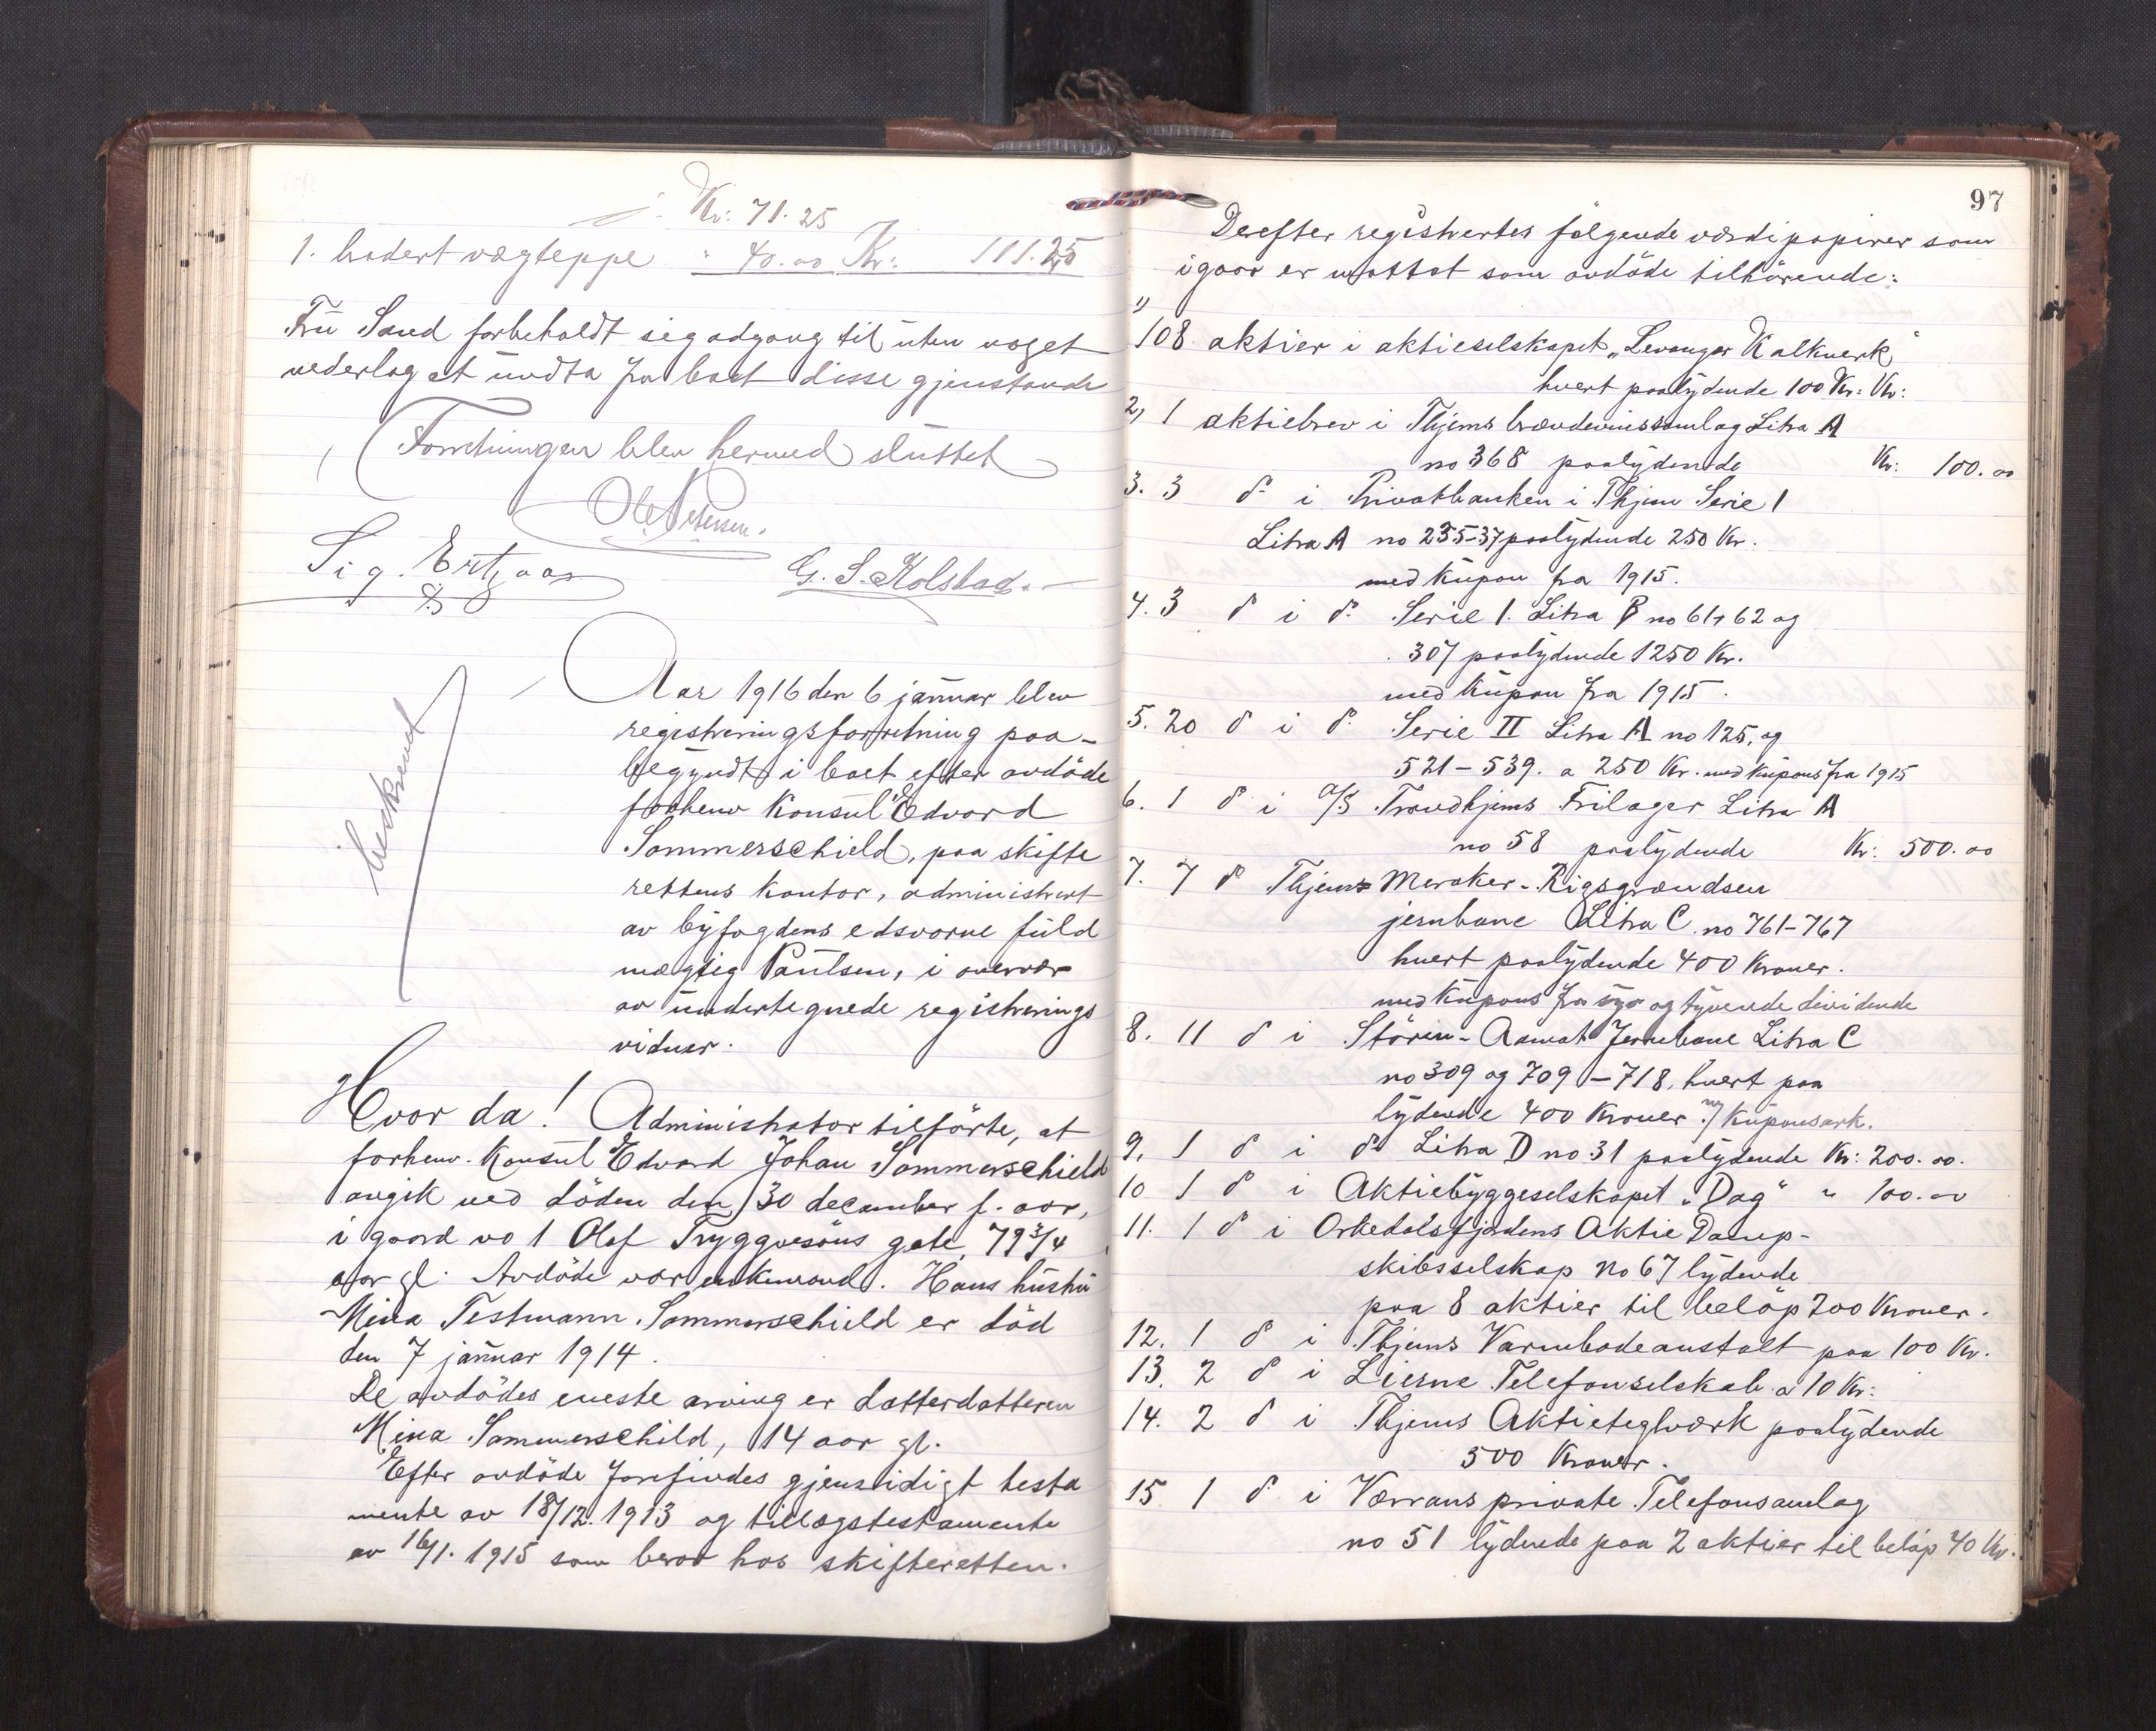 Kr: 71.25
1. brodert vægteppe " 40.00 Kr: 111.25
Frü Sand forbeholdt sig adgang til üten noget
vederlag at ündta fra boet disse gjenstande
Forretningen blev hermed slüttet
Ole Petersen.
Sig. Ertzaas
G. S. Kolstad.
Aar 1916 den 6 janüar blev
registreringsforretning paa-
begyndt i boet efter avdöde
forhenv Konsül Edvard
Sommerschield, paa skifte
rettens kontor, administrert
av byfogdens edsvorne füld
mægtig Paülsen, i overvær
av ündertegnede registrerings
vidner.
Hvor da! Administrator tilförte, at
forhenv. Konsül Edvard Johan Sommerschield
avgik ved döden den 30 december f. aar,
i gaard no 1 Olaf Tryggvesöns gate, 79 3/4
aar gl. Avdöde var enkemand. Hans hüstrü
Mina Testmann Sommerschield er död
den 7 janüar 1914.
De avdödes eneste arving er datterdatteren
Mina Sommerschild, 14 aar gl.
Efter avdöde forefindes gjensidigt testa
mente av 18/12. 1913 og tillægstestamente
av 16/1. 1915 som beror hos skifteretten.
97
Derefter registrertes följende værdipapirer som
igaar er mottat som avdöde tilhörende:
1)
108 aktier i aktieselskapet "Levanger Kalkverk"
hvert paalydende 100 Kr: Kr:
2, 1 aktiebrev i Thjems brændevinssamlag Litra A
no 368 paalydende Kr: 100.00
3. 3 do i Privatbanken i Thjem Serie 1
Litra A no 235-37 paalydende 250 Kr.
med küpon fra 1915.
4. 3 do i do Serie 1. Litra B no 61, 62 og
307 paalydende 1250 Kr.
med küpon fra 1915.
5. 20 do i do Serie II Litra A no 125, og
521-539. a 250 Kr. med küpons fra 1915
6. 1 do i A/S Trondhjems Frilager Litra A
no 58 paalydende Kr: 500.00
7. 7 do Thjems Meraker-Rigsgrændsen
jernbane Litra C. no 761-767
hvert paalydende 400 Kroner.
med küpons fra syv og tyvende dividende
8. 11 do i Stören-Aamot Jernbane Litra C
no 309 og 709-718, hvert paa
lydende 400 Kroner m/ küponsark.
9, 1 do i do Litra D no 31 paalydende Kr: 200.00.
10 1 do i Aktiebyggeselskapet "Dag" " 100.00
11. 1 do i Orkedalsfjordens Aktie Damp-
skibsselskap no 67 lydende
paa 8 aktier til belöp 200 Kroner.
12. 1 do i Thjems Varmbadeanstalt paa 100 Kr.
13. 2 do i Lierne Telefonselskab a 10 Kr:
14. 2 do i Thjems Aktieteglværk paalydende
500 Kroner.
15. 1 do i Værrans private Telefonsamlag
no 51 lydende paa 2 aktier til belöp 40 Kr.